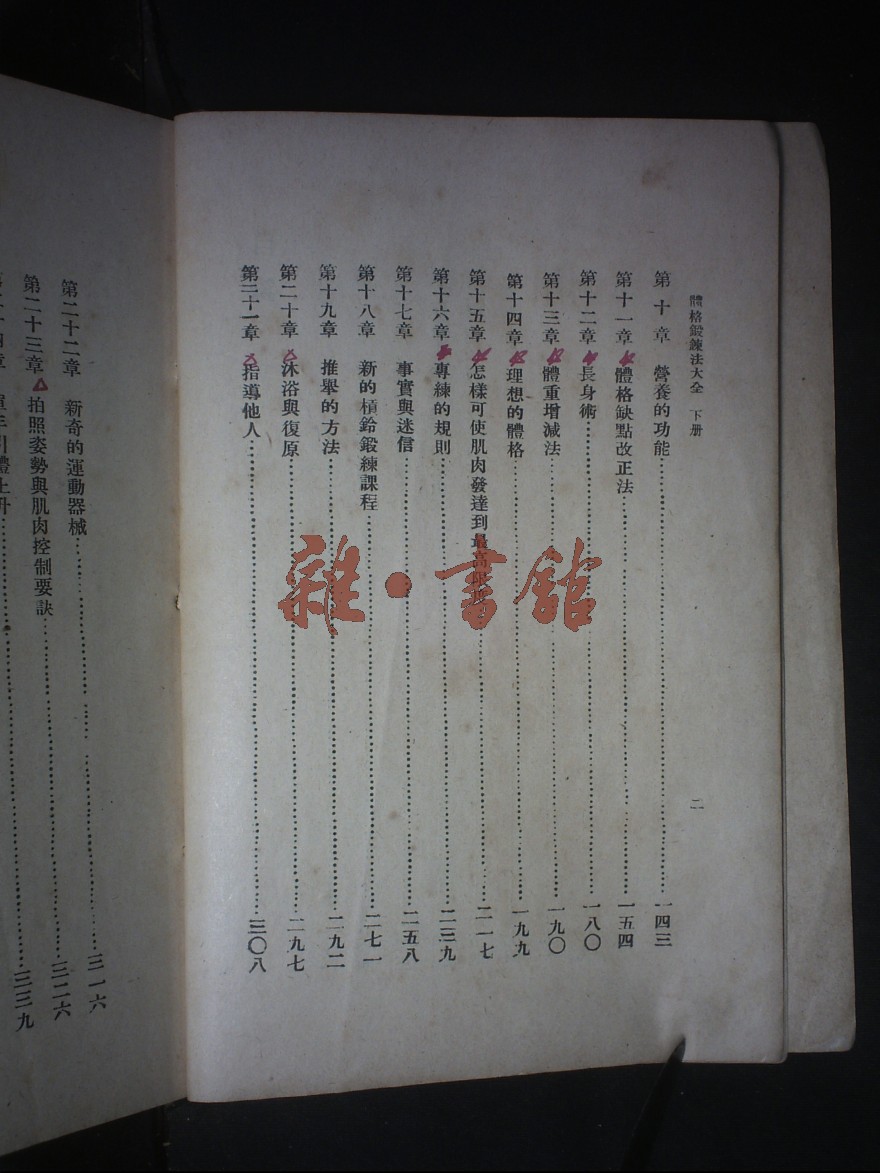 體格鍛鍊法大全 下册
二
第十章 營養的功能……一四三
第十一章 體格缺點改正法……一五四
第十二章 長身術……一八〇
第十三章 體重增減法……一九〇
第十四章 理想的體格……一九九
第十五章 怎樣可使肌肉發達到最高限度……二一七
第十六章 專練的規則……二三九
第十七章 事實與迷信……二五八
第十八章 新的槓鈴鍛練課程……二七一
第十九章 推舉的方法……二九二
第二十章 沐浴與復原……二九七
第二十一章 指導他人……三〇八
第二十二章 新奇的運動器械……三一六
第二十三章 拍照姿勢與肌肉控制要訣……三二六
引體上升……三三九
雜·書館